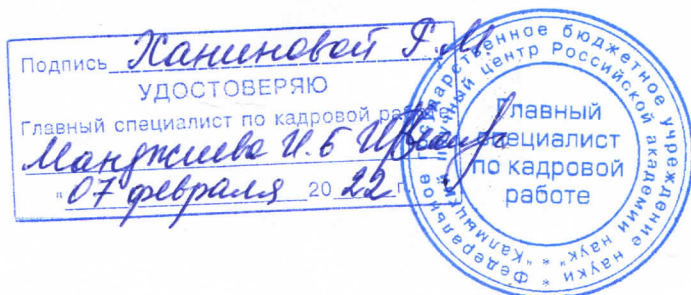 Подпись Ханиновой Р.М.
УДОСТОВЕРЯЮ
Главный специалист по кадровой работе
Манджиева И.Б
"07 февраля 2022 г.
Федеральное государственное бюджетное учреждение науки *
"Калмыцкий научный центр Российской академии наук" *
Главный
специалист
по кадровой
работе